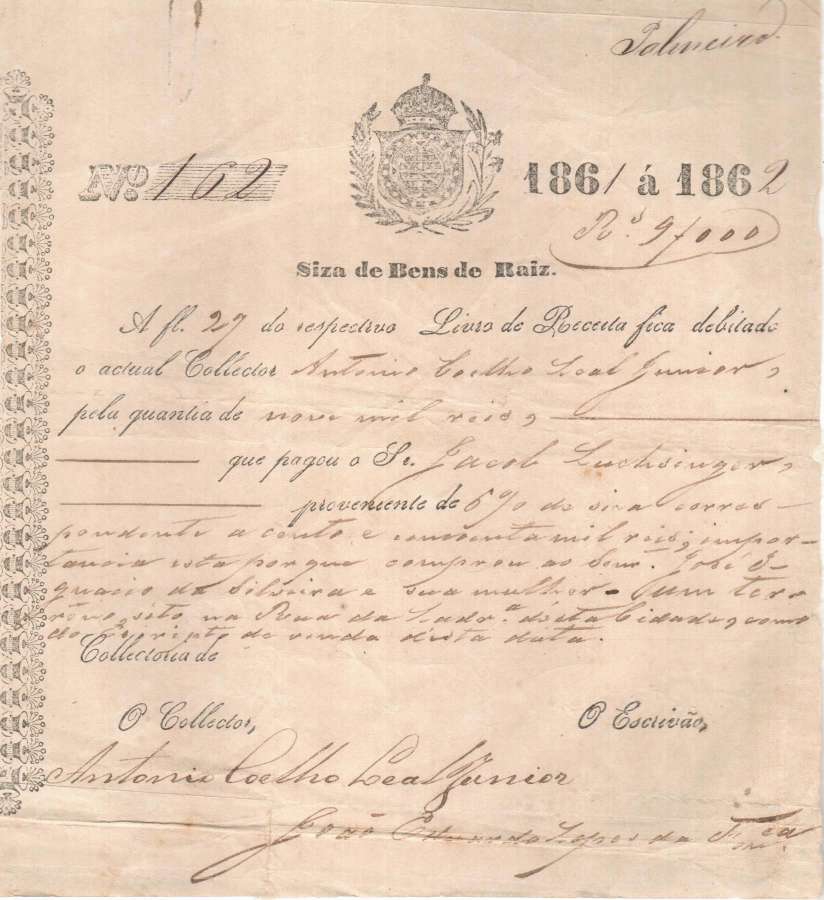 Palmeiro
Nº 162
1861 á 1862
Rs 9/000
Siza de Bens de Raiz.
A fl. 27 do respectivo Livro de Receita fica debitado
o actual Collector Antonio Coelho Leal Junior,
pela quantia de nove mil reis,
que pagou o Sr. Jacob Luchsinger,
proveniente de 6% de siza corres-
pondente a cento e cincoenta mil reis, impor-
tancia esta porque comprou ao Senr. José I-
gnacio da Silveira e sua mulher um ter-
reno, sito na Rua da Ladrª desta Cidade, como
do escripto de venda desta data.
Collectoria de
O Collector,
O Escrivão,
Antonio Coelho Leal Junior
João Eduardo Lopes da